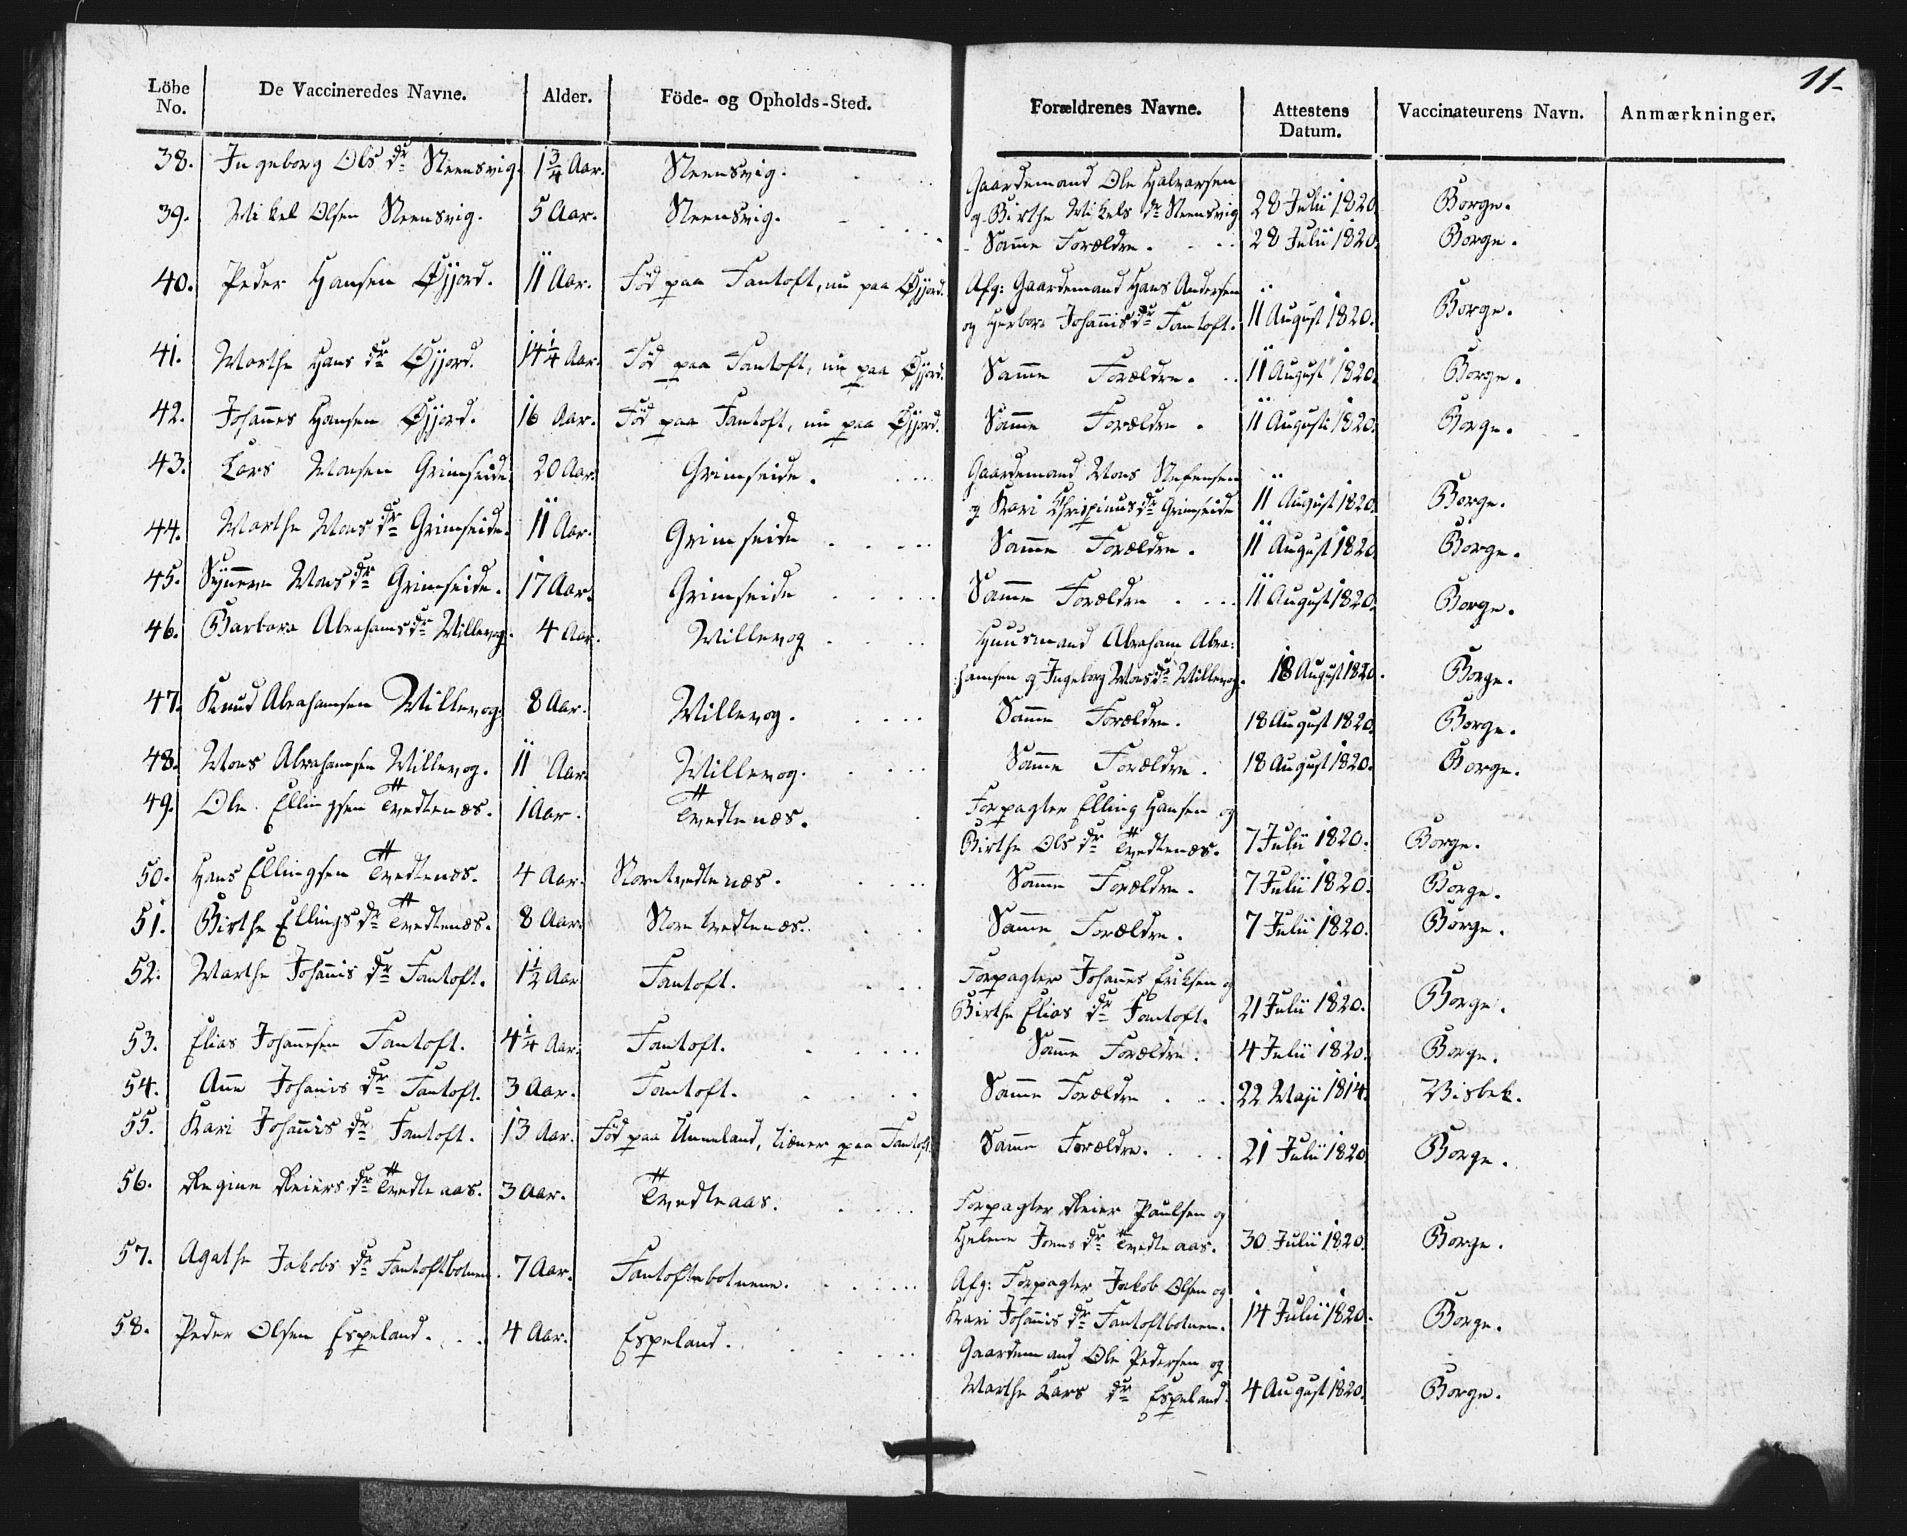 11.
Löbe No. De Vaccineredes Navne. Alder. Föde- og Opholds-Sted. Forældrenes Navne. Attestens Datum. Vaccinateurens Navn. Anmærkninger.
38. Ingeborg Ols dr Steensvig. 1 3/4 Aar. Steensvig. Gaardemand Ole Halvorsen
og Birthe Mikels dr Steensvig 28 Julii 1820. Borge.
39. Mikel Olsen Steensvig. 5 Aar. Steensvig. Samme Forældre. 28 Julii 1820. Borge.
40. Peder Hansen Øyjord. 11 Aar. Föd paa Fantoft, nu paa Øyjord. Afg: Gaardemand Hans Andersen
og Herbor Johannis dr Fantoft. 11 August 1820. Borge.
41. Marthe Hans dr Øyjord. 14 1/4 Aar. Föd paa Fantoft, nu paa Øyjord. Samme Forældre. 11 August 1820. Borge.
42. Johannes Hansen Øyjord. 16 Aar. Föd paa Fantoft, nu paa Øyjord. Samme Forældre. 11 August 1820. Borge.
43. Lars Monsen Grimseide. 20 Aar. Grimseide. Gaardemand Mons Stefensen
og Kari Chrispinus dr Grimseide 11 August 1820. Borge.
44. Marthe Mons dr Grimseide. 11 Aar. Grimseide Samme Forældre. 11 August 1820. Borge.
45. Synneve Mons dr Grimseide. 17 Aar. Grimseide Samme Forældre. 11 August 1820. Borge.
46. Barbara Abrahams dr Millevog. 4 Aar. Millevog Huusmand Abraham Abra:
hamsen og Ingeborg Mons dr Millevog. 18 August 1820. Borge.
47. Knud Abrahamsen Millevog. 8 Aar. Millevog. Samme Forældre. 18 August 1820. Borge.
48. Mons Abrahamsen Millevog. 11 Aar. Millevog. Samme Forældre. 18 August 1820. Borge.
49. Ole Ellingsen Tvedtenæs. 1 Aar. Tvedtenæs. Forpagter Elling Hansen og
Birthe Ols dr Tvedtenæs. 7 Julii 1820. Borge.
50. Hans Ellingsen Tvedtenæs. 4 Aar. Storetvedtenæs. Samme Forældre. 7 Julii 1820. Borge.
51. Birthe Ellings dr Tvedtenæs. 8 Aar. Storetvedtenæs. Samme Forældre. 7 Julii 1820. Borge.
52. Marthe Johannis dr Fantoft. 1 1/2 Aar Fantoft. Forpagter Johannes Eriksen og
Birthe Elias dr Fantoft. 21 Julii 1820. Borge.
53. Elias Johannesen Fantoft. 4 1/4 Aar. Fantoft. Samme Forældre. 4 Julii 1820. Borge.
54. Anne Johannis dr Fantoft. 3 Aar. Fantoft. Samme Forældre 22 Maji 1814. Visbek.
55. Kari Johannis dr Fantoft. 13 Aar. Föd paa Unneland, tiener paa Fantoft. Samme Forældre. 21 Julii 1820. Borge.
56. Regine Reiers dr Tvedteaas. 3 Aar. Tvedteaas. Forpagter Reier Paulsen og
Helene Jens dr Tvedteaas. 30 Julii 1820. Borge.
57. Agathe Jakobs dr Fantoftbotnen. 7 Aar. Fantoftebotnene. Afg: Forpagter Jakob Olsen og
Kari Johannis dr Fantoftbotnen. 14 Julii 1820. Borge.
58. Peder Olsen Espeland. 4 Aar. Espeland. Gaardemand Ole Pedersen og
Marthe Lars dr Espeland. 4 August 1820. Borge.